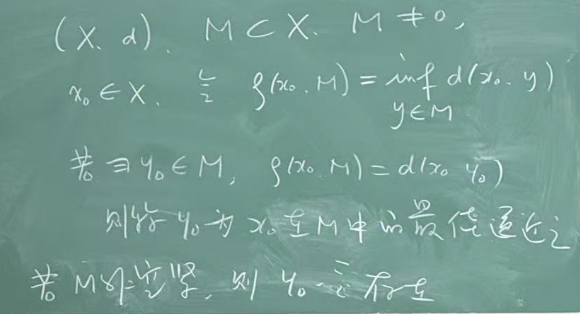 (X, d), M ⊂ X, M ≠ 0,
x₀ ∈ X, 记 ρ(x₀, M) = inf d(x₀, y)
y ∈ M
若 ∃ y₀ ∈ M, ρ(x₀, M) = d(x₀, y₀)
则称 y₀ 为 x₀ 在 M 中的最佳逼近元
若 M 列紧, 则 y₀ 一定存在